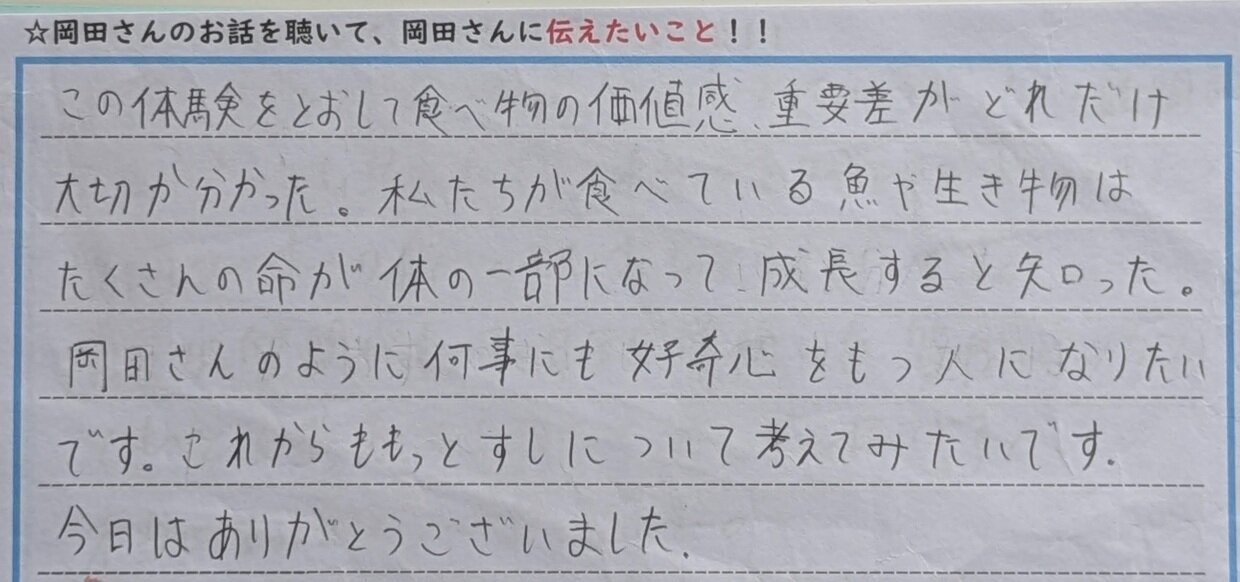 ☆岡田さんのお話を聴いて、岡田さんに伝えたいこと！！
この体験をとおして食べ物の価値感、重要差がどれだけ
大切か分かった。私たちが食べている魚や生き物は
たくさんの命が体の一部になって成長すると知った。
岡田さんのように何事にも好奇心をもつ人になりたい
です。これからももっとすしについて考えてみたいです.
今日はありがとうございました.